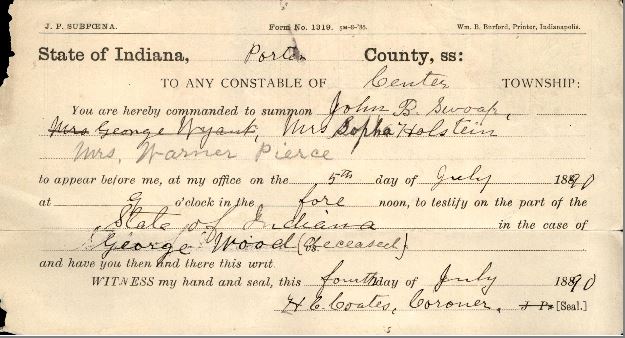 J. P. SUBPŒNA. Form No. 1319. 5M-8-'85. Wm. B. Burford, Printer, Indianapolis.
State of Indiana, Porter County, ss:
TO ANY CONSTABLE OF Center TOWNSHIP:
You are hereby commanded to summon John B. Swoap,
Mrs George Wyant, Mrs Sopha Holstein
Mrs. Warner Pierce
to appear before me, at my office on the 5th day of July 1890
at 9 o'clock in the fore noon, to testify on the part of the
State of Indiana in the case of
George Wood (deceased)
and have you then and there this writ.
WITNESS my hand and seal, this fourth day of July 1890
H. C. Coates, Coroner, J. P. [Seal.]